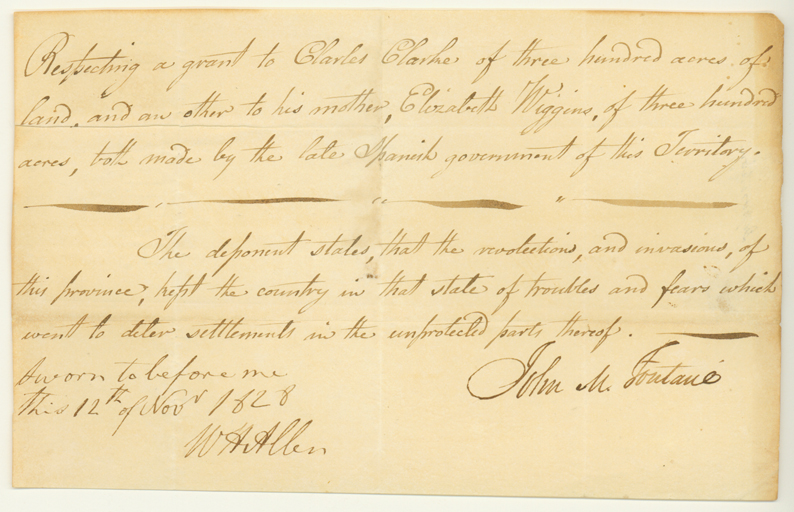 Respecting a grant to Charles Clarke of three hundred acres of
land, and an other to his mother, Elizabeth Wiggins, of three hundred
acres, both made by the late Spanish government of this Territory.
The deponent states, that the revolections, and invasions, of
this province, kept the country in that state of troubles and fears which
went to deter settlements in the unprotected parts thereof.
Sworn to before me
this 12th of Novr 1828
John M. Fontané
W H Allen